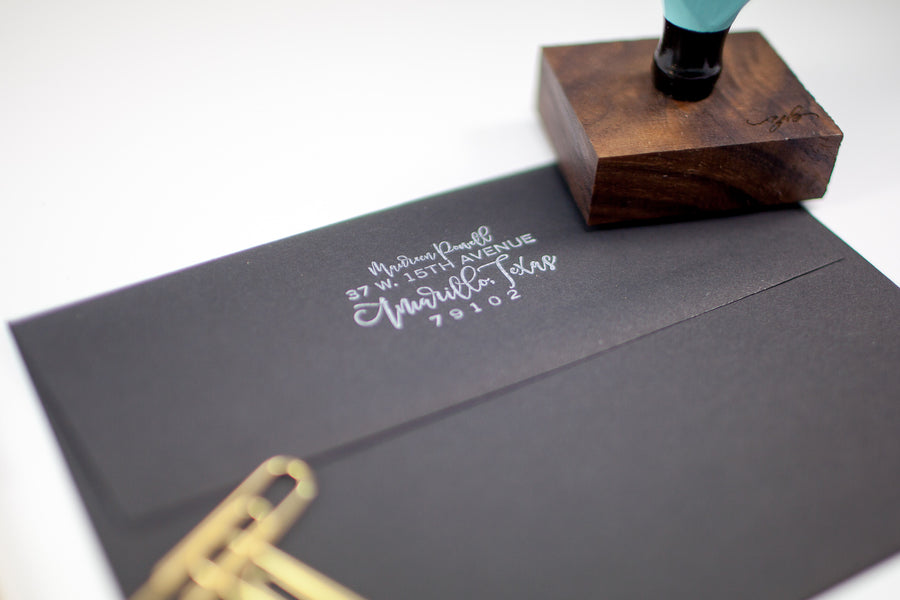 Maureen Powell
37 W. 15TH AVENUE
Amarillo, Texas
79102